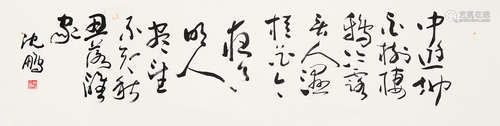 中庭地
白树棲
鸦冷露
无声湿
桂花今
夜月
明人
尽望
不知秋
思落谁
家
沈鹏